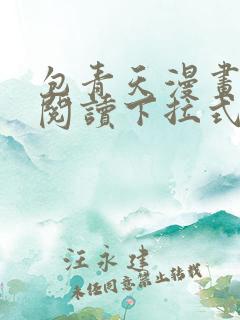 包青天漫畫
閱讀下拉式
汪永建
未經同意禁止轉載